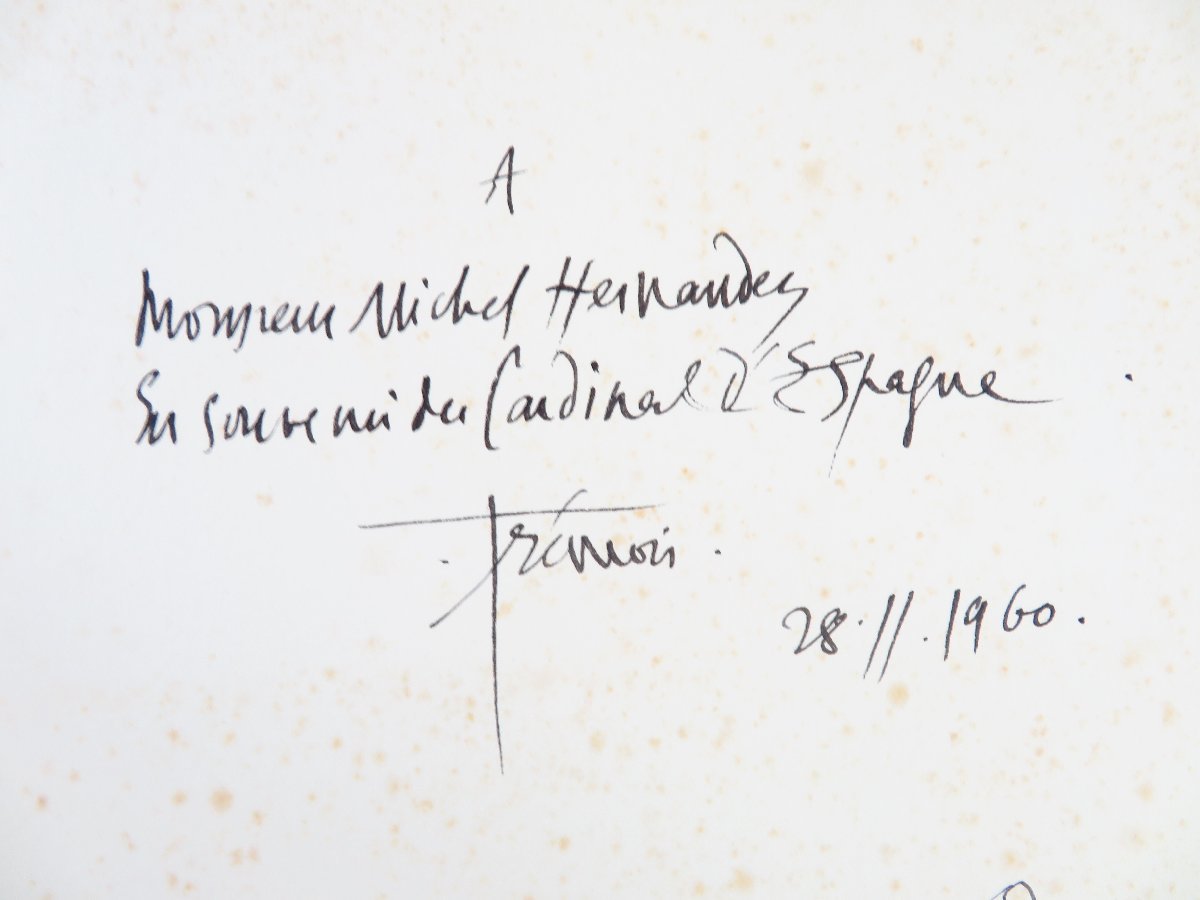 A
Monsieur Michel Hernandez
En souvenir du Cardinal d'Espagne
Trémois.
28.11.1960.